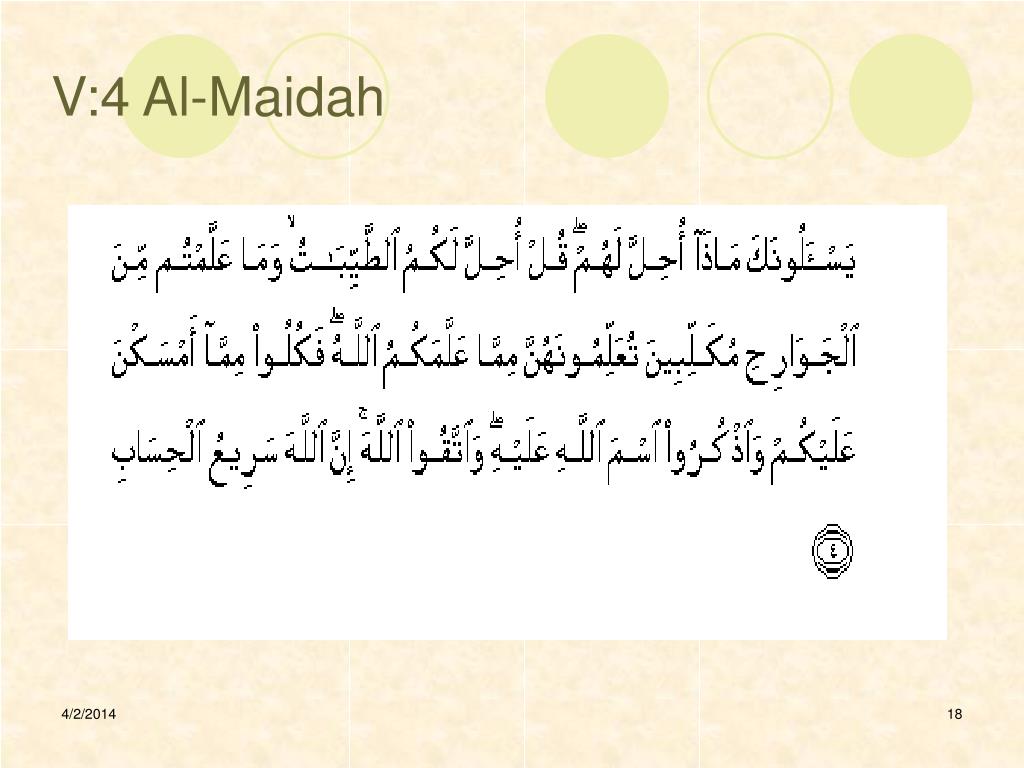 V:4 Al-Maidah
يَسْـَٔلُونَكَ مَاذَآ أُحِلَّ لَهُمْ ۖ قُلْ أُحِلَّ لَكُمُ ٱلطَّيِّبَـٰتُ ۙ وَمَا عَلَّمْتُم مِّنَ
ٱلْجَوَارِحِ مُكَلِّبِينَ تُعَلِّمُونَهُنَّ مِمَّا عَلَّمَكُمُ ٱللَّهُ ۖ فَكُلُوا۟ مِمَّآ أَمْسَكْنَ
عَلَيْكُمْ وَٱذْكُرُوا۟ ٱسْمَ ٱللَّهِ عَلَيْهِ ۖ وَٱتَّقُوا۟ ٱللَّهَ ۚ إِنَّ ٱللَّهَ سَرِيعُ ٱلْحِسَابِ
٤
4/2/2014 18